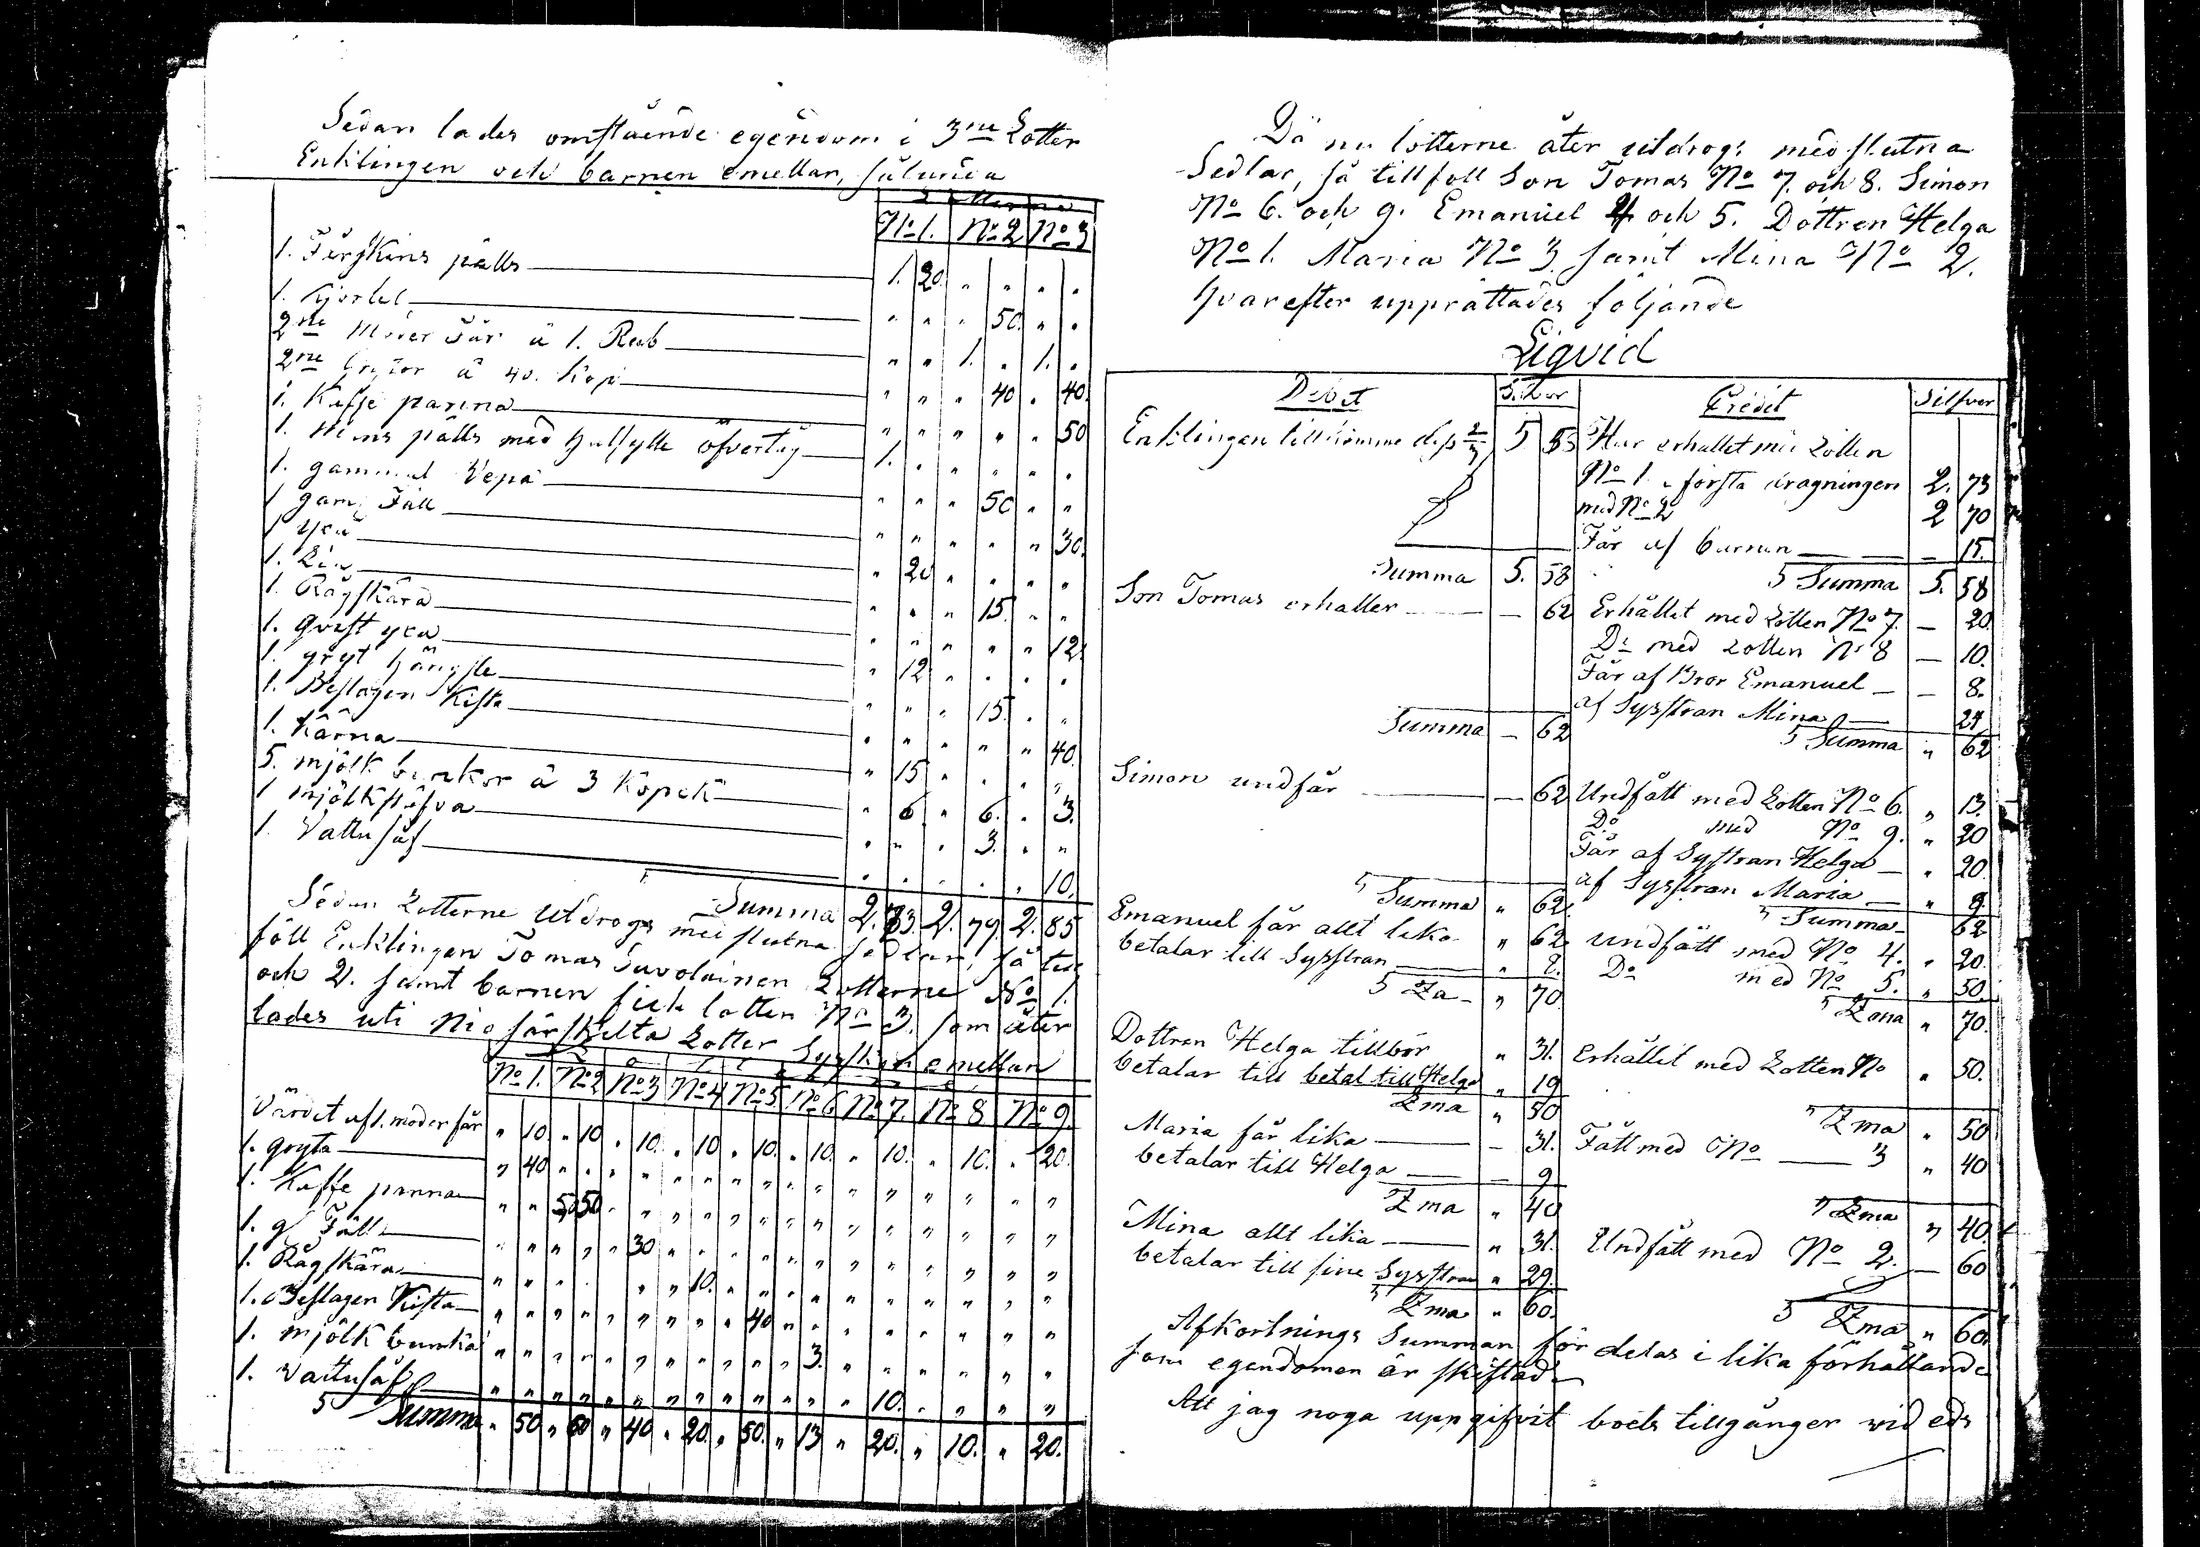 Sedan lades omstående egendom i 3ne Lotter
Enklingen och barnen emellan, sålunda
Lotterna
No 1. No 2 No 3
1. Fårskins pälls 1. 20. " " " "
1. Kjortel " " " 50. " "
2ne Moder Får á 1. Rub " " 1. " 1. "
2ne Grytor á 40. Kop " " " 40 " 40.
1. Kaffe panna " " " " " 50
1. pälls med öfvertyg 1. " " " " "
1. gammal Vepa " " " 50 " "
1 gam. Fäll " " " " " 30.
1 yxa " 20 " " " "
1. Lia " " " 15. " "
1. Rågskära " " " " " 12.
1. qvist yxa " 12. " " " "
1. gryt hängsle " " " 15. " "
1. Beslagen Kista " " " " " 40.
1. Kärna " 15 " " " "
5. mjölk bunkor á 3 Kopek " 6. " 6. " 3.
1 mjölkstäfva " " " 3. " "
1. Vattu såf " " " " " 10.
Summa 2. 73. 2. 79. 2. 85
Sedan Lotterne utdrogs med slutna sedlar, så till
föll Enklingen Tomas Savolainen Lotterne No 1.
och 2. samt barnen fick lotten No 3. som åter
lades uti Nio särskilta Lotter Syskon emellan
No 1. No 2 No 3 No 4 No 5 No 6 No 7. No 8 No 9.
Värdet af 1. moder får " 10. " 10 " 10. " 10 " 10. " 10. " 10. " 10. " 20.
1. gryta " 40 " " " " " " " " " " " " " " " "
1. Kaffe panna " " " 50 " " " " " " " " " " " " " "
1. g Fäll " " " " " 30 " " " " " " " " " " " "
1. Rågskära " " " " " " " 10. " " " " " " " " " "
1. Beslagen Kista " " " " " " " " " 40 " " " " " " " "
1. mjölk bunka " " " " " " " " " " " 3. " " " " " "
1. Vattusåf " " " " " " " " " " " " " 10. " " " "
Summa " 50 " 60 " 40 " 20. " 50. " 13 " 20. " 10. " 20.
Då nu lotterne åter utdrogs med slutna
Sedlar, så tillföll Son Tomas No 7. och 8. Simon
No 6. och 9. Emanuel 4 och 5. Dottren Helga
No 1. Maria No 3 samt Mina No 2.
hvarefter upprättades följande
Liqvid
Debet Silfver Credit Silfver
Enklingen tillkomme dess 2/3 5 58 Har erhållet med Lotten
No 1. i första dragningen 2. 73
med No 2 2 70
Får af barnen — 15.
Summa 5. 58 Summa 5. 58
Son Tomas erhåller — 62 Erhållit med Lotten No 7. — 20.
Do med Lotten No 8 — 10.
Får af Bror Emanuel — 8.
af Systran Mina 24
Summa — 62 Summa " 62
Simon undfår — 62 Undfått med Lotten No 6. " 13.
Do med No 9. " 20
Får af Systran Helga " 20.
af Systran Maria " 9.
Summa " 62. Summa 62
Emanuel får allt lika " 62 undfått med No 4. " 20.
betalar till Systran " 8. Do med No 5. " 50.
Za " 70. Zma " 70.
Dottren Helga tillbör " 31. Erhållit med Lotten No " 50.
betalar till betal till Helga " 19
Zma " 50 Zma " 50
Maria får lika — 31. Fått med No 3 " 40
betalar till Helga — 9
Zma " 40 Zma " 40
Mina allt lika " 31. Undfått med No 2. — 60
betalar till sine Systran " 29.
Zma " 60. Zma " 60.
Afkortnings Summan fördelas i lika förhållande
som egendomen är skiftad
Att jag noga uppgifvit boets tillgånger wid eds